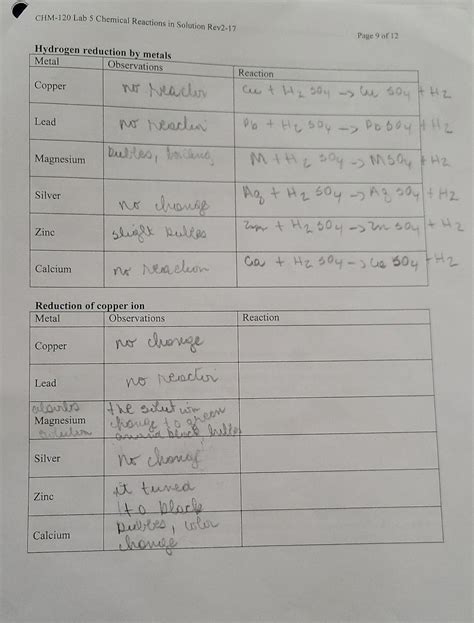 CHM-120 Lab 5 Chemical Reactions in Solution Rev2-17
Page 9 of 12
Hydrogen reduction by metals
Metal Observations Reaction
Copper no reactior Cu + H2 SO4 -> Cu SO4 + H2
Lead no reactior Pb + H2 SO4 -> Pb SO4 + H2
Magnesium bubles, M + H2 SO4 -> MSO4 + H2
Silver no change Ag + H2 SO4 -> Ag SO4 + H2
Zinc slight bulles Zn + H2 SO4 -> Zn SO4 + H2
Calcium no reaction Ca + H2 SO4 -> Ca SO4 + H2
Reduction of copper ion
Metal Observations Reaction
Copper no change
Lead no reactior
the solution
Magnesium change to green
solution black
Silver No change
Zinc it tuned
to black
Calcium bubles, color
change